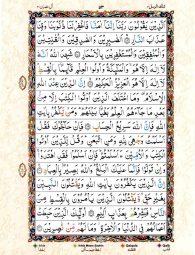 تلك الرسل ٣
٥٣
آل عمران ٣
اَلَّذِيْنَ يَقُوْلُوْنَ رَبَّنَآ اِنَّنَآ اٰمَنَّا فَاغْفِرْ لَنَا ذُنُوْبَنَا وَقِنَا
عَذَابَ النَّارِ اَلصّٰبِرِيْنَ وَالصّٰدِقِيْنَ وَالْقٰنِتِيْنَ
وَالْمُنْفِقِيْنَ وَالْمُسْتَغْفِرِيْنَ بِالْاَسْحَارِ شَهِدَ اللّٰهُ اَنَّهٗ
لَآ اِلٰهَ اِلَّا هُوَ وَالْمَلٰٓئِكَةُ وَاُولُوا الْعِلْمِ قَآئِمًاۢ بِالْقِسْطِ
لَآ اِلٰهَ اِلَّا هُوَ الْعَزِيْزُ الْحَكِيْمُ اِنَّ الدِّيْنَ عِنْدَ اللّٰهِ
الْاِسْلَامُ وَمَا اخْتَلَفَ الَّذِيْنَ اُوْتُوا الْكِتٰبَ اِلَّا مِنْۢ بَعْدِ
مَا جَآءَهُمُ الْعِلْمُ بَغْيًاۢ بَيْنَهُمْ وَمَنْ يَّكْفُرْ بِاٰيٰتِ
اللّٰهِ فَاِنَّ اللّٰهَ سَرِيْعُ الْحِسَابِ فَاِنْ حَآجُّوْكَ فَقُلْ
اَسْلَمْتُ وَجْهِيَ لِلّٰهِ وَمَنِ اتَّبَعَنِ وَقُلْ لِّلَّذِيْنَ اُوْتُوا
الْكِتٰبَ وَالْاُمِّيّٖنَ ءَاَسْلَمْتُمْ فَاِنْ اَسْلَمُوْا فَقَدِ اهْتَدَوْا
وَاِنْ تَوَلَّوْا فَاِنَّمَا عَلَيْكَ الْبَلٰغُ وَاللّٰهُ بَصِيْرٌۢ بِالْعِبَادِ
اِنَّ الَّذِيْنَ يَكْفُرُوْنَ بِاٰيٰتِ اللّٰهِ وَيَقْتُلُوْنَ النَّبِيّٖنَ
بِغَيْرِ حَقٍّ وَّيَقْتُلُوْنَ الَّذِيْنَ يَاْمُرُوْنَ بِالْقِسْطِ مِنَ
النَّاسِ فَبَشِّرْهُمْ بِعَذَابٍ اَلِيْمٍ اُولٰٓئِكَ الَّذِيْنَ حَبِطَتْ
اَعْمَالُهُمْ فِى الدُّنْيَا وَالْاٰخِرَةِ وَمَا لَهُمْ مِّنْ نّٰصِرِيْنَ